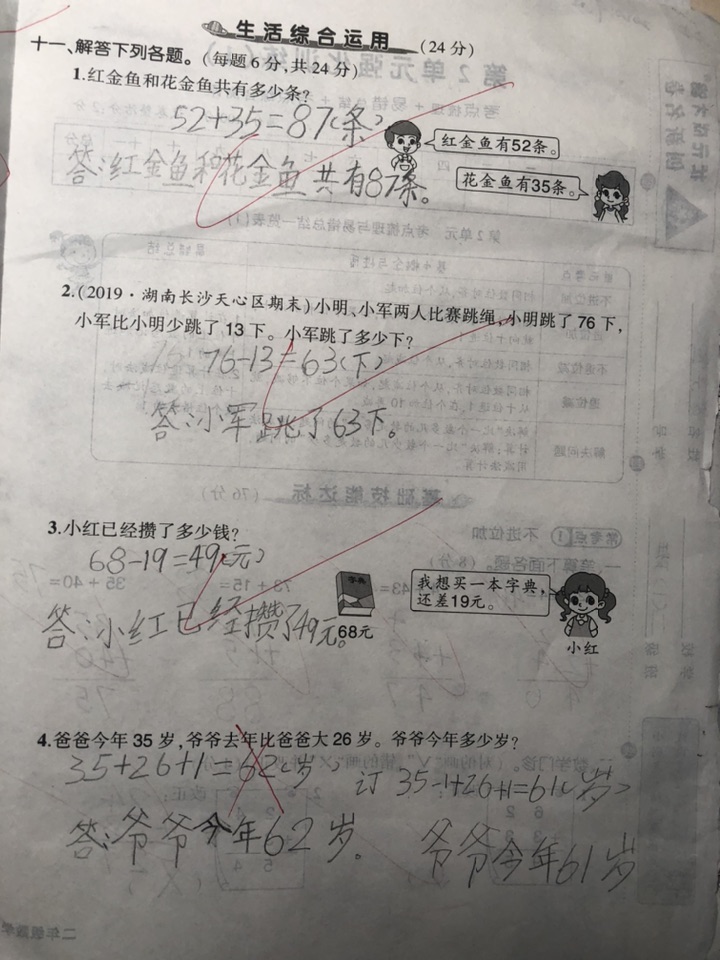 生活综合运用 (24分)
十一、解答下列各题。(每题6分,共24分)
1.红金鱼和花金鱼共有多少条?
52+35=87(条)
红金鱼有52条。
答:红金鱼和花金鱼共有87条。
花金鱼有35条。
2.(2019·湖南长沙天心区期末)小明、小军两人比赛跳绳,小明跳了76下,
小军比小明少跳了13下。小军跳了多少下?
76-13=63(下)
答:小军跳了63下。
3.小红已经攒了多少钱?
68-19=49(元)
我想买一本字典,
还差19元。
字典
答:小红已经攒了49元。
68元
小红
4.爸爸今年35岁,爷爷去年比爸爸大26岁。爷爷今年多少岁?
35+26+1=62(岁) 订 35-1+26+1=61(岁)
答:爷爷今年62岁。 爷爷今年61岁